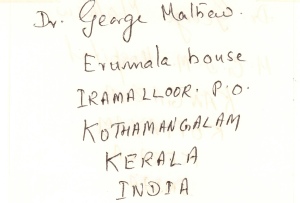 Dr. George Mathew.
Erumala house
IRAMALLOOR. P.O.
KOTHAMANGALAM
KERALA
INDIA